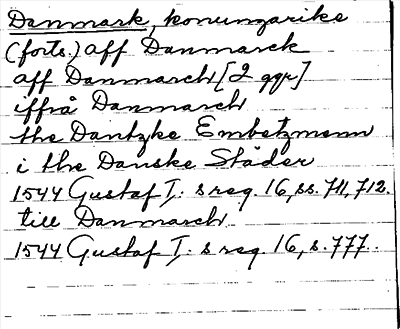 Danmark, konungarike
(forts.) aff Danmarck
aff Danmarch [2 ggr]
iffrå Danmarch
the Dantzke Embetzmenn
i the Danske Städer
1544 Gustaf I:s reg. 16, ss. 711, 712.
till Danmarch
1544 Gustaf I:s reg. 16, s. 777.